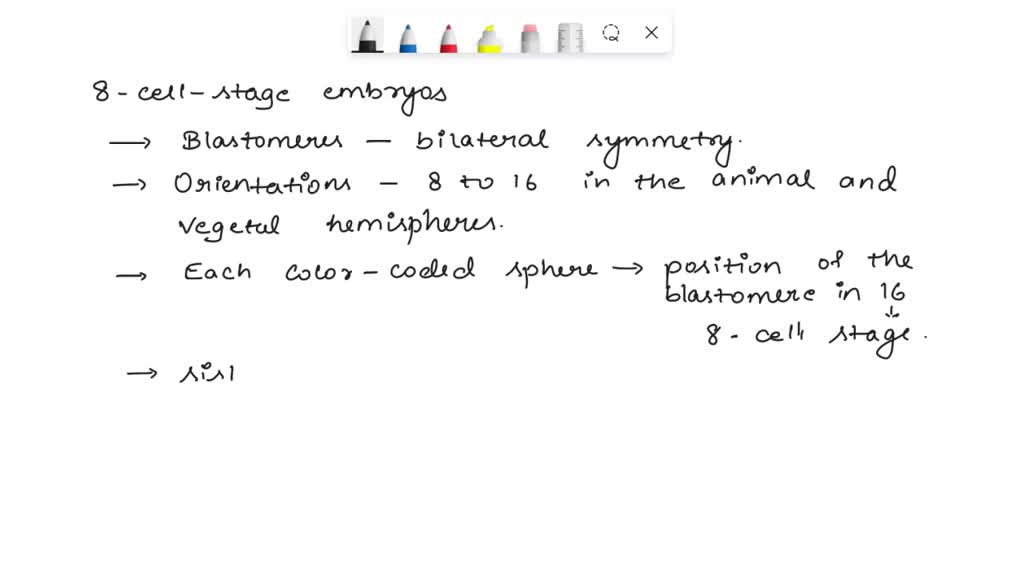 8-cell-stage embryos
→ Blastomeres - bilateral symmetry.
→ Orientations - 8 to 16 in the animal and
vegetal hemispheres.
→ Each color-coded sphere → position of the
blastomere in 16
↓
8-cell stage.
→ sisl